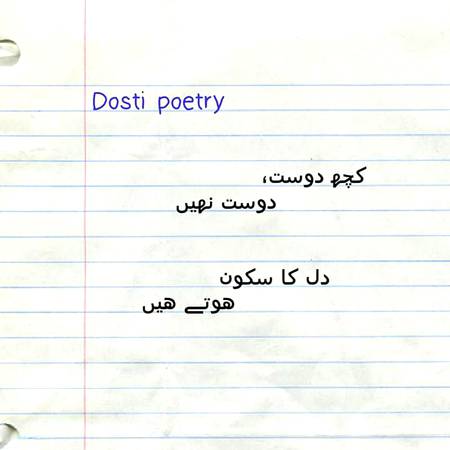 Dosti poetry
کچھ دوست،
دوست نھیں
دل کا سکون
ھوتے ھیں